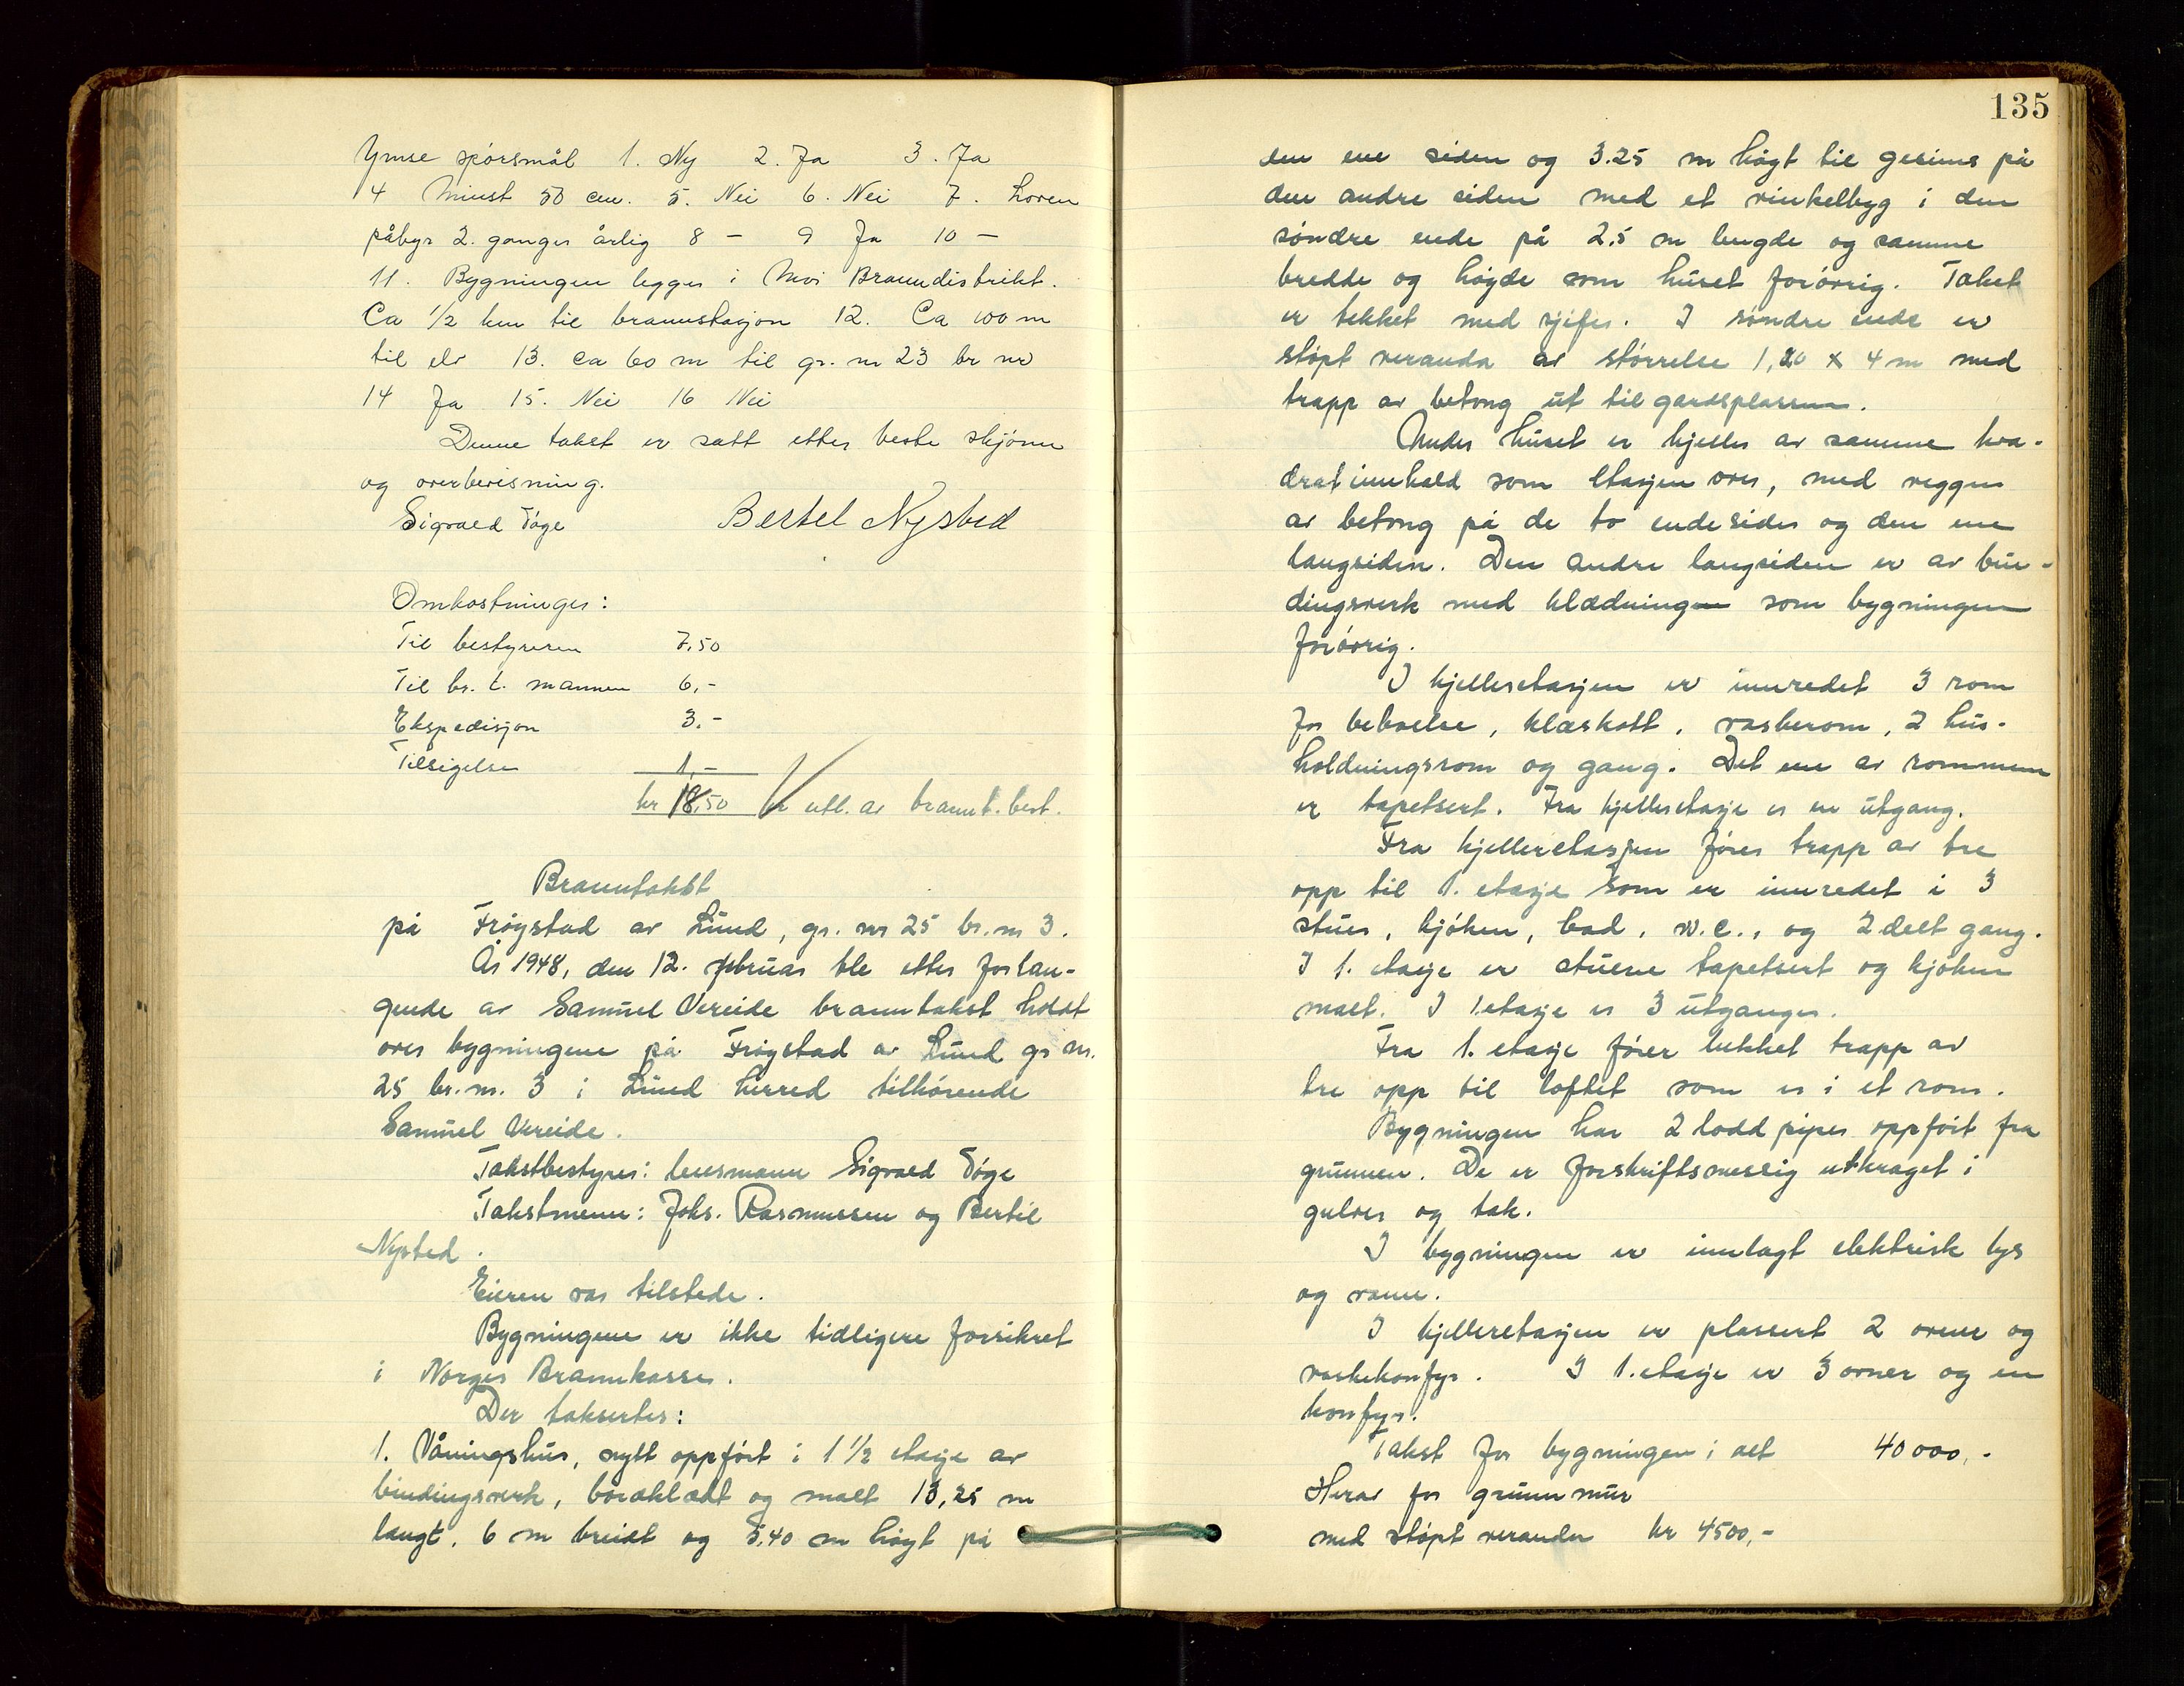 Ymse spörsmål 1. Ny 2. Ja 3. Ja
4 Minst 50 cm. 5. Nei 6. Nei 7. Loven
påbyr 2. ganger årlig 8 - 9 Ja 10 -
11. Bygningen legger i Moi Branndistrikt.
Ca 1/2 km til brannstasjon 12. Ca 100 m
til elv 13. Ca 60 m til gr. nr 23 br nr
14 Ja 15. Nei 16 Nei
Denne takst er satt etter beste skjönn
og overbevisning.
Sigvald Töge Bertel Nysted
Omkostninger:
Til bestyreren 7,50
Til br. t. mannen 6,-
Ekspedisjon 3.-
Tilsigelse 1,-
kr 18,50 utb. av brannt. best.
Branntakst
på Fröystad av Lund, gr. nr 25 br. nr 3.
År 1948, den 12. februar ble etter forlan-
gende av Samuel Vereide branntakst holdt
over bygningene på Fröystad av Lund gr nr.
25 br. nr. 3 i Lund herred tilhörende
Samuel Vereide.
Takstbestyrer: lensmann Sigvald Töge
Takstmenn: Johs. Rasmussen og Bertil
Nysted.
Eieren var tilstede.
Bygningene er ikke tidligere forsikret
i Norges Brannkasse.
Der taksertes:
1. Våningshus, nytt oppfört i 1 1/2 etasje av
bindingsverk, bordklædt og malt 13,25 m
langt, 6 m breidt og 5,40 m högt på
135
den ene siden og 3.25 m högt til gesims på
den andre siden med et vinkelbyg i den
söndre ende på 2,5 m lengde og samme
bredde og högde som huset forövrig. Taket
er tekket med sjifer. I söndre ende er
stöpt veranda av störrelse 1,20 x 4 m med
trapp av betong ut til gardsplassen.
Under huset er kjeller av samme kva-
dratinnhold som etasjen over, med vegger
av betong på de to endesider og den ene
langsiden. Den andre langsiden er av bin-
dingsverk med klædning som bygningen
forövrig.
I kjelleretasjen er innredet 3 rom
for beboelse, klæskott, vaskerom, 2 hus-
holdningsrom og gang. Det ene av rommene
er tapetsert. Fra kjelleretasje er en utgang.
Fra kjelleretasjen förer trapp av tre
opp til 1. etasje som er innredet i 3
stuer, kjöken, bad, w.c., og 2 delt gang.
I 1. etasje er stuene tapetsert og kjöken
malt. I 1. etasje er 3 utganger.
Fra 1. etasje förer lukket trapp av
tre opp til loftet som er i et rom.
Bygningen har 2 lodd piper oppfört fra
grunnen. De er forskriftsmessig utkraget i
gulver og tak.
I bygningen er innlagt elektrisk lys
og vann.
I kjelleretasjen er plassert 2 ovner og
vaskekomfyr. I 1. etasje er 3 ovner og en
komfyr.
Takst for bygningen i alt 40 000,-
Herav for grunnmur
med stöpt veranda kr 4500,-